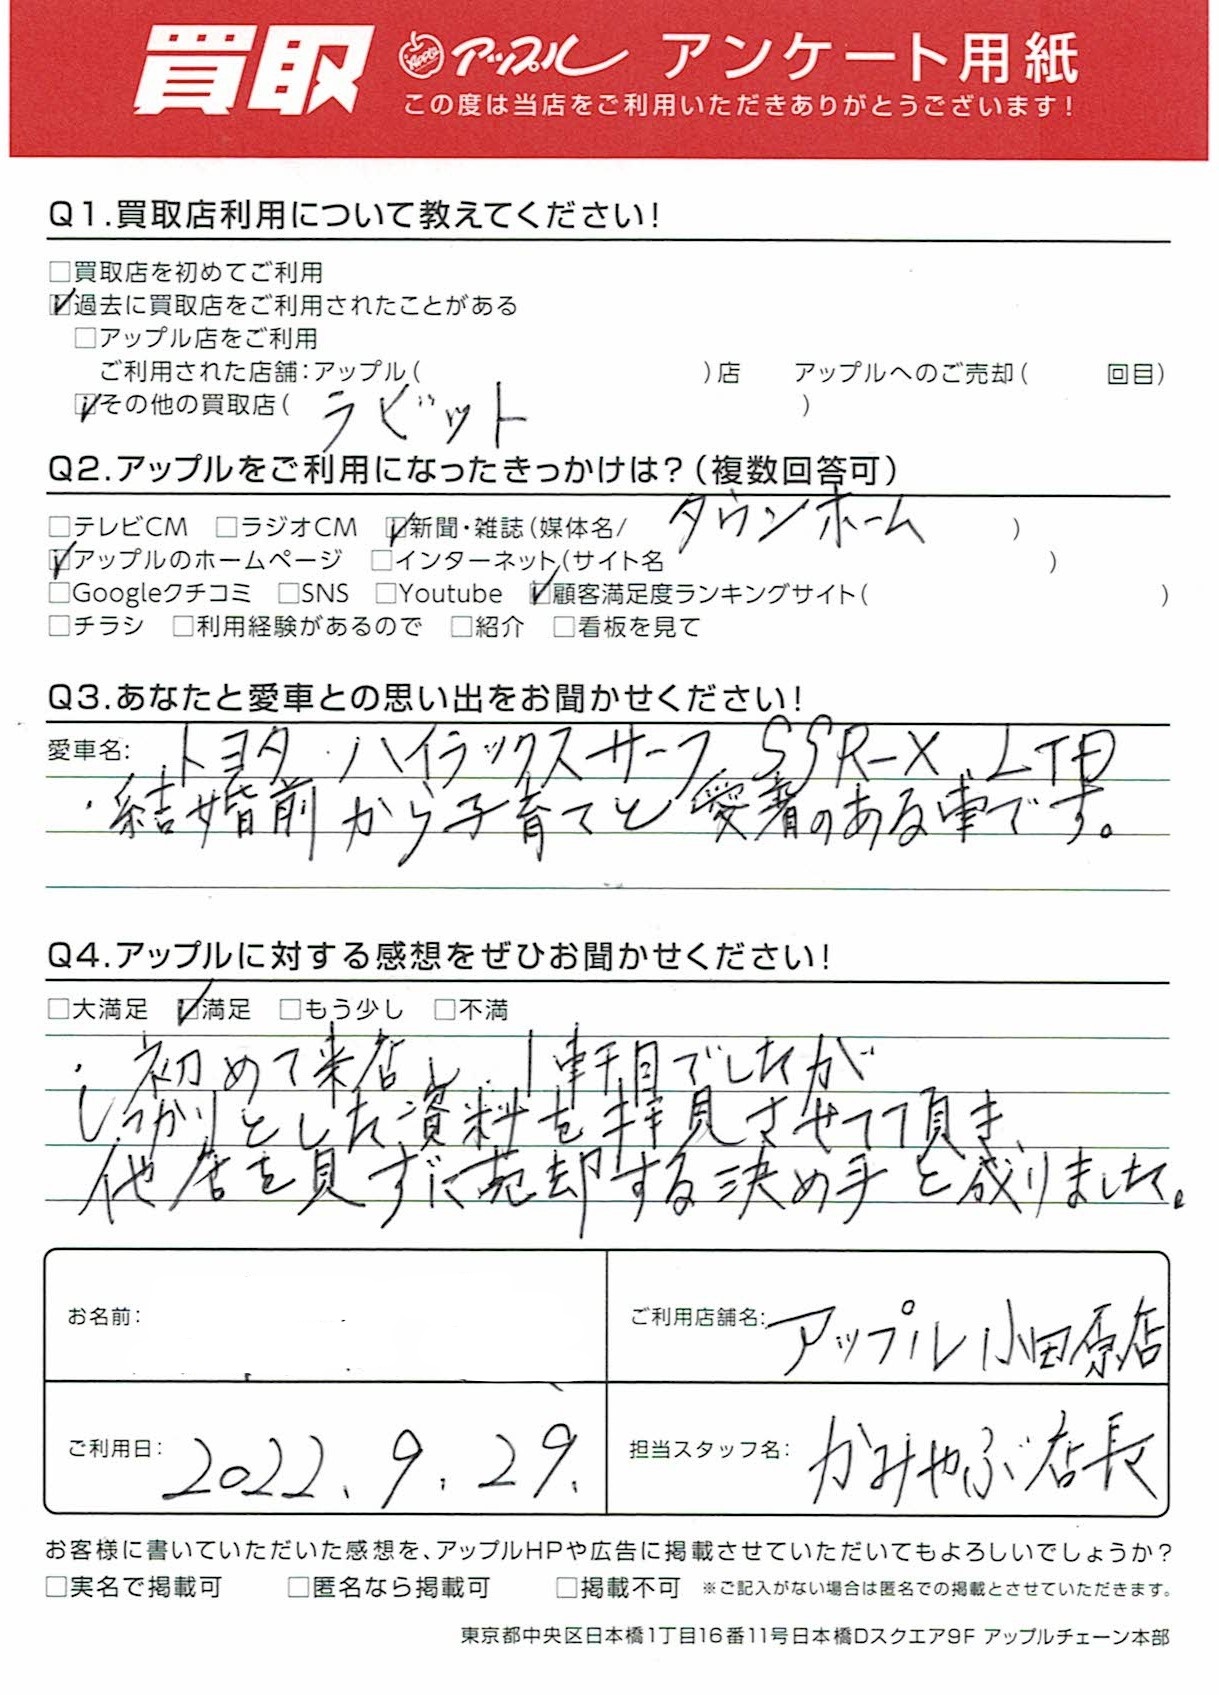 買取 Apple アップル アンケート用紙
この度は当店をご利用いただきありがとうございます!
Q1.買取店利用について教えてください!
□買取店を初めてご利用
☑過去に買取店をご利用されたことがある
□アップル店をご利用
ご利用された店舗:アップル( )店 アップルへのご売却( 回目)
☑その他の買取店( ラビット )
Q2.アップルをご利用になったきっかけは?(複数回答可)
□テレビCM □ラジオCM ☑新聞・雑誌(媒体名/ タウンホーム )
☑アップルのホームページ □インターネット(サイト名 )
□Googleクチコミ □SNS □Youtube ☑顧客満足度ランキングサイト( )
□チラシ □利用経験があるので □紹介 □看板を見て
Q3.あなたと愛車との思い出をお聞かせください!
愛車名: トヨタ・ハイラックスサーフ SSR-X LTD
・結婚前から子育てと愛着のある車です。
Q4.アップルに対する感想をぜひお聞かせください!
□大満足 ☑満足 □もう少し □不満
・初めて来店し、1軒目でしたが
しっかりとした資料を拝見させて頂き、
他店を見ずに売却する決め手と成りました。
お名前:
ご利用店舗名: アップル小田原店
ご利用日: 2022.9.29.
担当スタッフ名: かみやぶ店長
お客様に書いていただいた感想を、アップルHPや広告に掲載させていただいてもよろしいでしょうか?
□実名で掲載可 □匿名なら掲載可 □掲載不可 ※ご記入がない場合は匿名での掲載とさせていただきます。
東京都中央区日本橋1丁目16番11号日本橋Dスクエア9F アップルチェーン本部